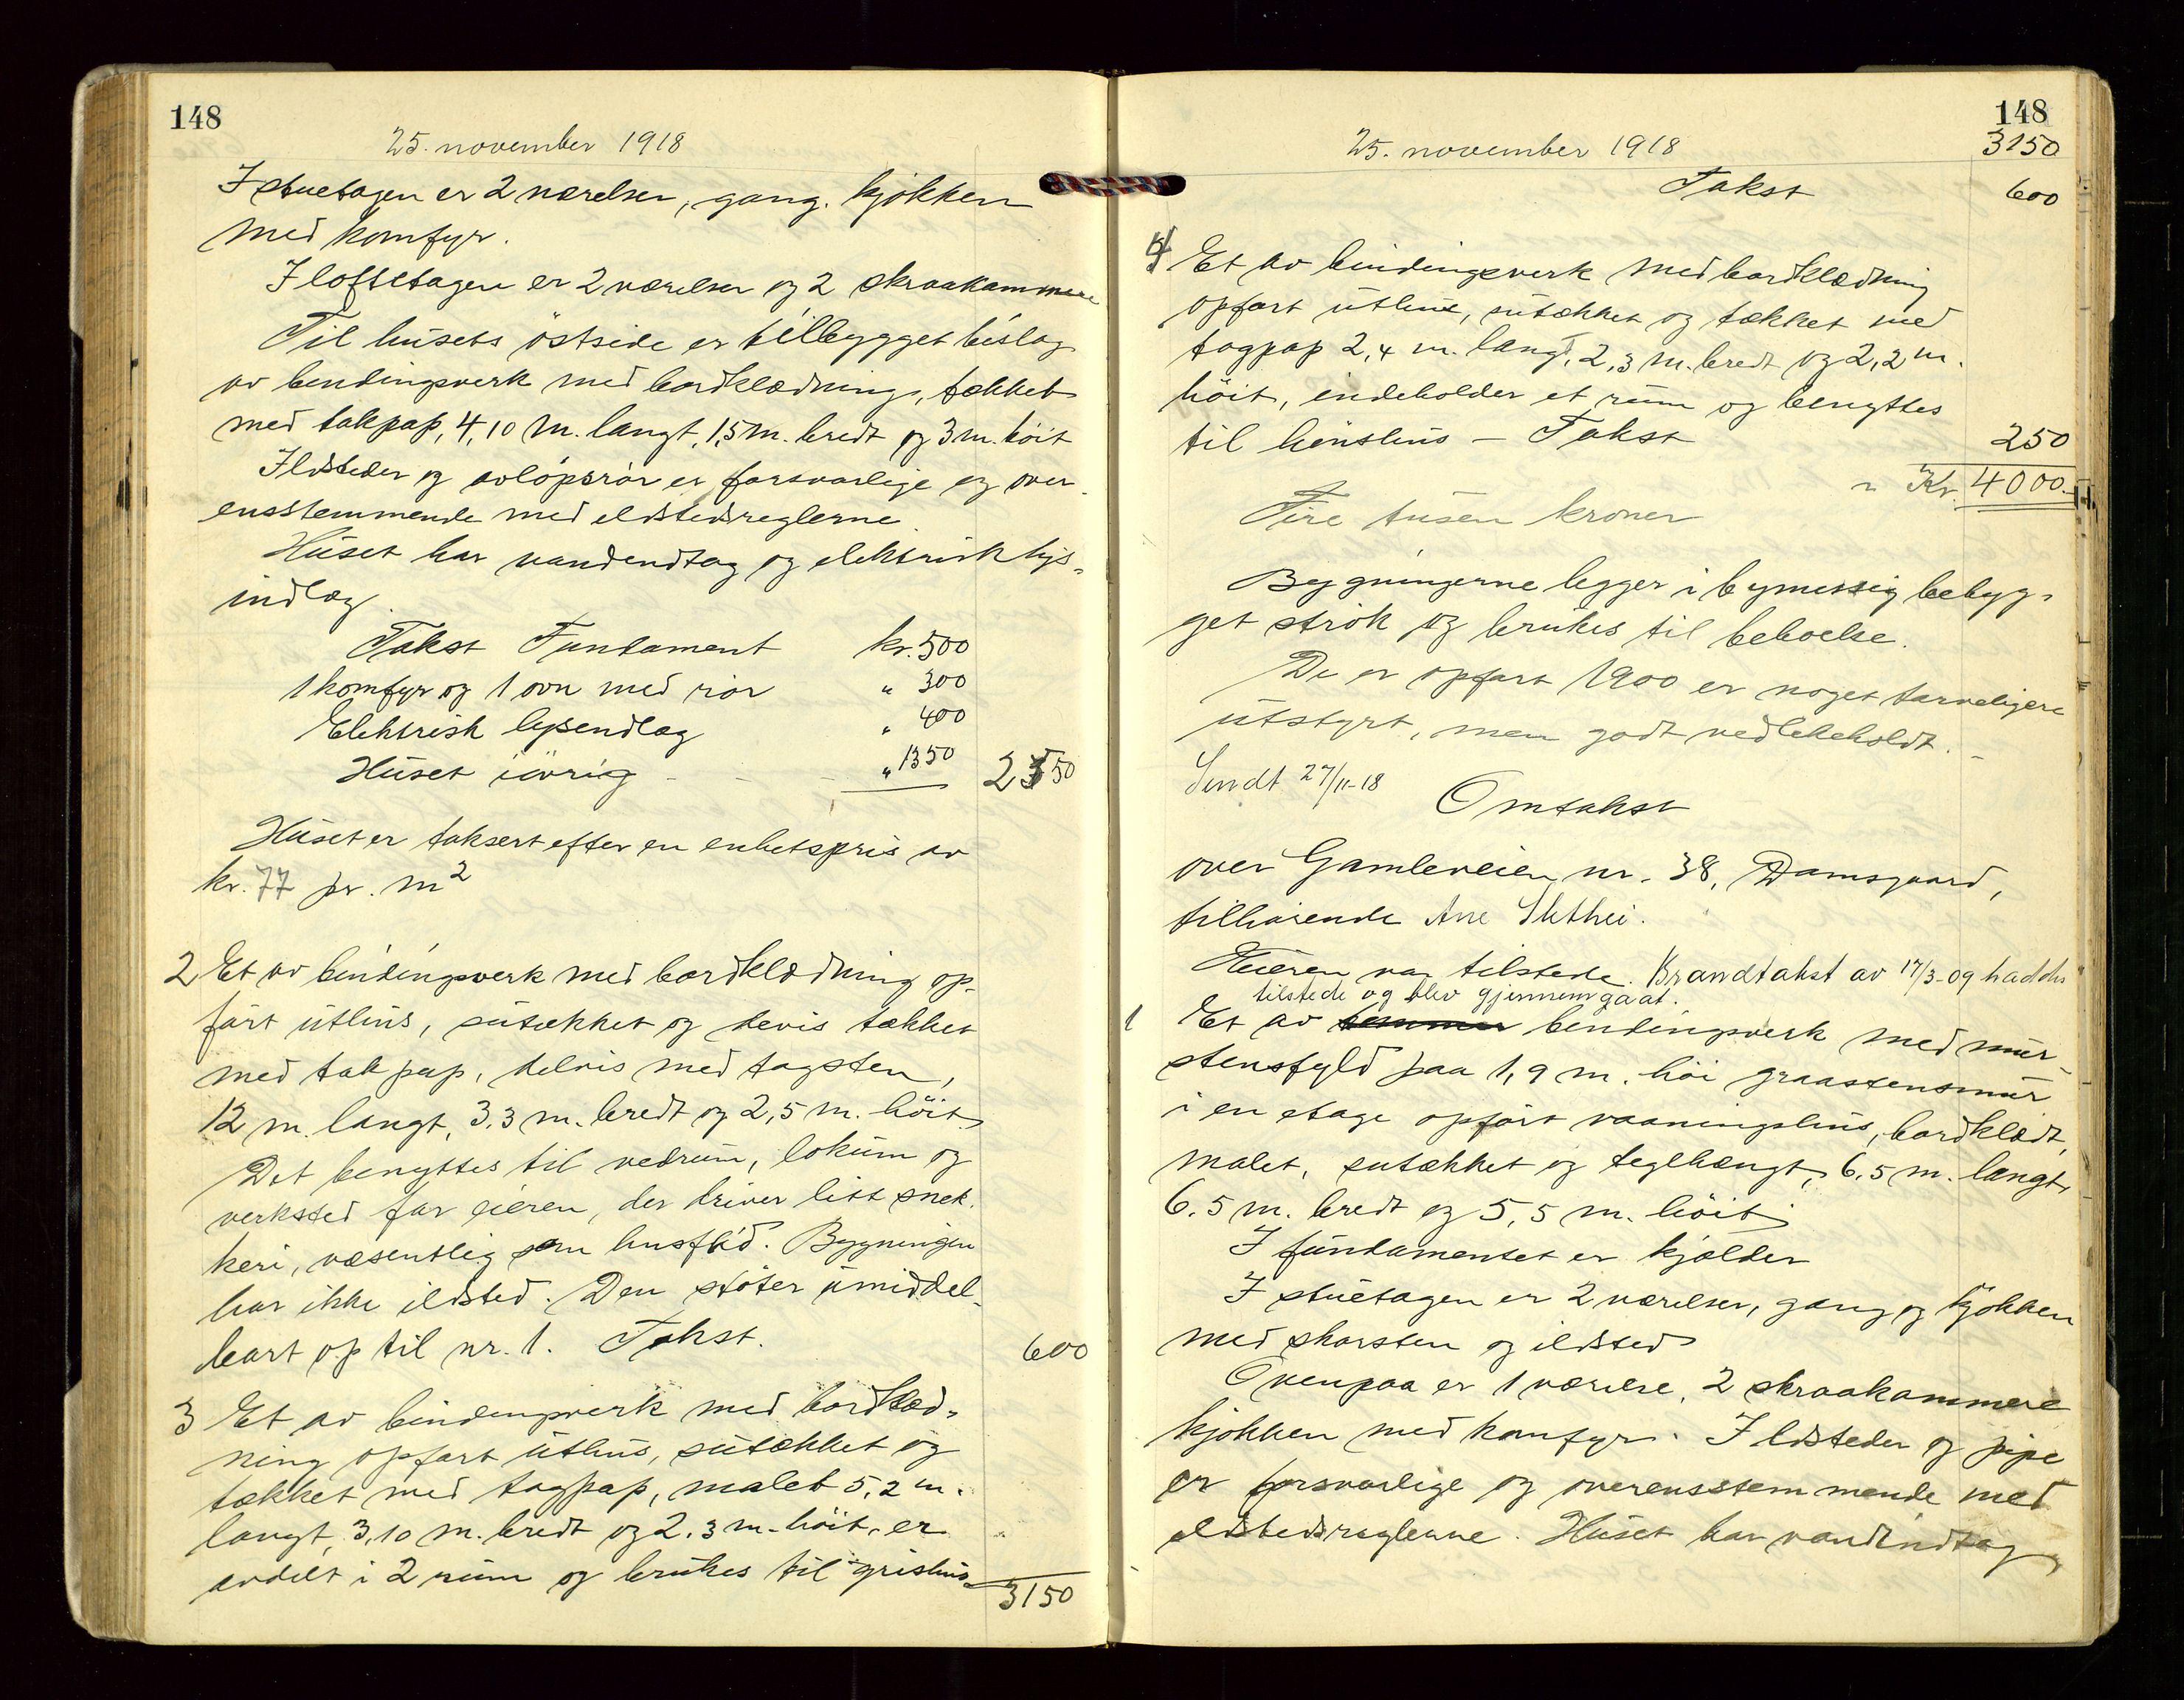 148
25. november 1918
I stuetagen er 2 værelser, gang, kjøkken
med komfyr.
I loftsetagen er 2 værelser og 2 skraakammere
Til husets østside er tilbygget bislag
av bindingsverk med bordklædning, tækket
med takpap, 4,10 m. langt, 1,5 m. bredt og 3 m. høit
Ildsteder og avløpsrør er forsvarlige og over-
ensstemmende med ildstedsreglerne.
Huset har vandindtag og elektrisk lys-
indlæg.
Takst Fundament kr. 500
1 komfyr og 1 ovn med rør " 300
Elektrisk lysindlæg " 400
Huset iøvrig - - - " 1350 2550
Huset er taksert efter en enhetspris av
kr. 77 pr. m²
2 Et av bindingsverk med bordklædning op-
ført uthus, sutækket og delvis tækket
med takpap, delvis med tagsten,
12 m. langt, 3,3 m. bredt og 2,5 m. høit.
Det benyttes til vedrum, lokum og
verksted for eieren, der driver litt snek-
keri, væsentlig som husflid. Bygningen
har ikke ildsted. Den støter umiddel-
bart op til nr. 1. Takst. 600
3 Et av bindingsverk med bordklæd-
ning opført uthus, sutækket og
tækket med tagpap, malet 5,2 m.
langt, 3,10 m. bredt og 2,3 m. høit, er
avdelt i 2 rum og brukes til grishus
3150
148
25. november 1918 3150
Takst 600
4 Et av bindingsverk med bordklædning
opført uthus, sutækket og tækket med
tagpap 2,4 m. langt, 2,3 m. bredt og 2,2 m.
høit, indeholder et rum og benyttes
til hønshus – Takst 250
Kr. 4000.-
Fire tusen kroner
Bygningerne ligger i bymessig bebyg-
get strøk og brukes til beboelse.
De er opført 1900 er noget tarveligere
utstyrt, men godt vedlikeholdt.
Sendt 27/11-18
Omtakst
over Gamleveien nr. 38, Damsgaard,
tilhørende Ane Slethei.
Eieren var tilstede. Brandtakst av 17/3-09 haddes
tilstede og blev gjennemgaat.
1 Et av tømmer bindingsverk med mur-
stensfyld paa 1,9 m. høi graastensmur
i en etage opført vaaningshus, bordklædt,
malet, sutækket og teglhængt, 6,5 m. langt,
6,5 m. bredt og 5,5 m. høit.
I fundamentet er kjælder
I stuetagen er 2 værelser, gang og kjøkken
med skorsten og ildsted
Ovenpaa er 1 værelse, 2 skraakammere
kjøkken med komfyr. Ildsteder og pipe
er forsvarlige og overensstemmende med
ildstedsreglerne. Huset har vandindtag,